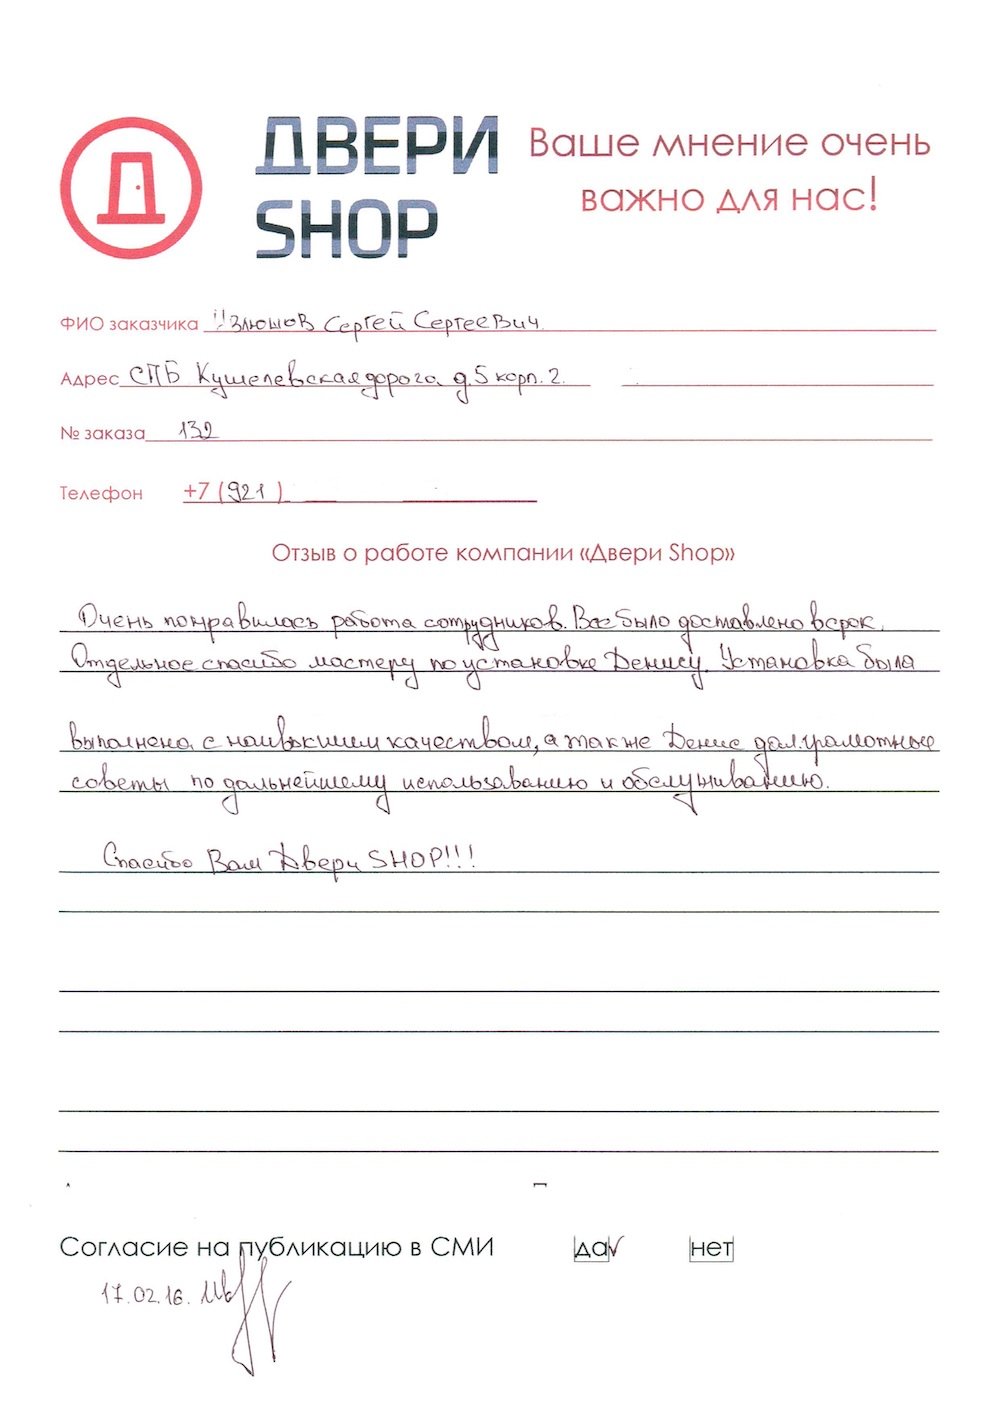 ДВЕРИ SHOP
Ваше мнение очень важно для нас!
ФИО заказчика Сергей Сергеевич
Адрес СПБ Кушелевская дорога д.5 корп.2.
№ заказа 132
Телефон +7 (921)
Отзыв о работе компании «Двери Shop»
Очень понравилась работа сотрудников. Все было доставлено в срок.
Отдельное спасибо мастеру по установке Денису. Установка была
выполнена с наивысшим качеством, а так же Денис дал грамотные
советы по дальнейшему использованию и обслуживанию.
Спасибо Вам Двери SHOP!!!
Согласие на публикацию в СМИ да нет
17.02.16.